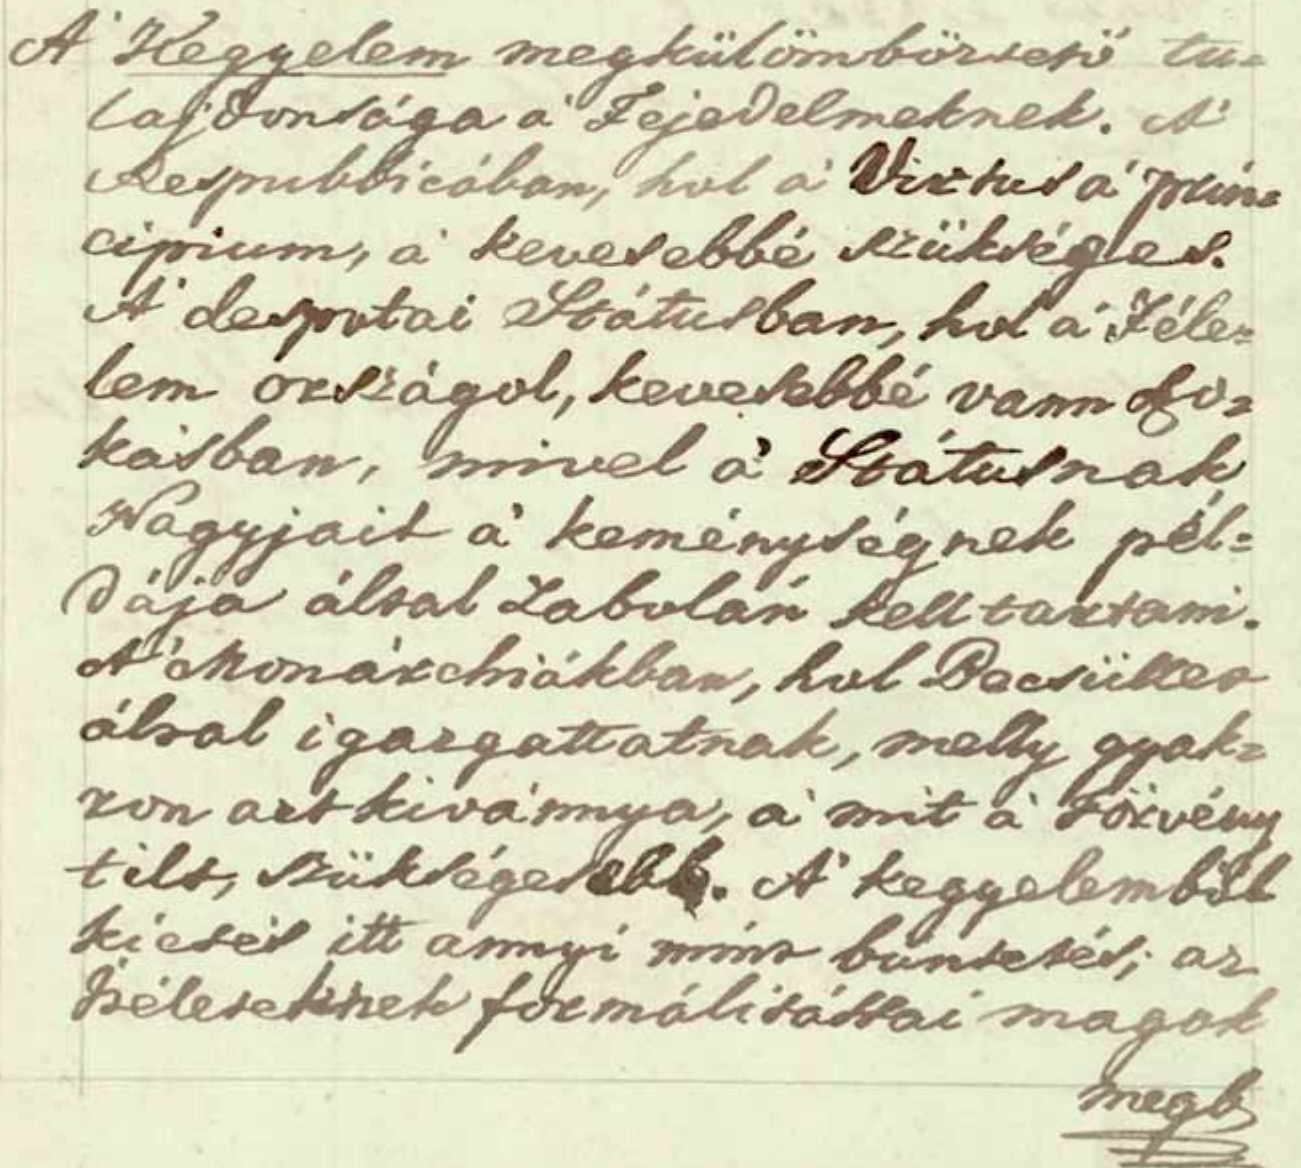 A' Kegyelem megkülömböztető tu=
lajdonsága a' Fejedelmeknek. A'
Respublicában, hol a' Virtus a' prin=
cipium, a' kevesebbé szükséges.
A' despotai Státusban, hol a' Féle=
lem országol, kevesebbé vann szo=
kásban, mivel a' Státusnak
Nagyjait a' keménységnek pél=
dája által Zabolán kell tartani.
A' Monárchiákban, hol Becsűllet
által igazgattatnak, melly gyak=
ron azt kivánnya, a' mit a' törvény
tilt, szükségesebb. A' kegyelemből
kiesés itt annyi mint büntetés; az
Itéleteknek formálitássai magok
megb